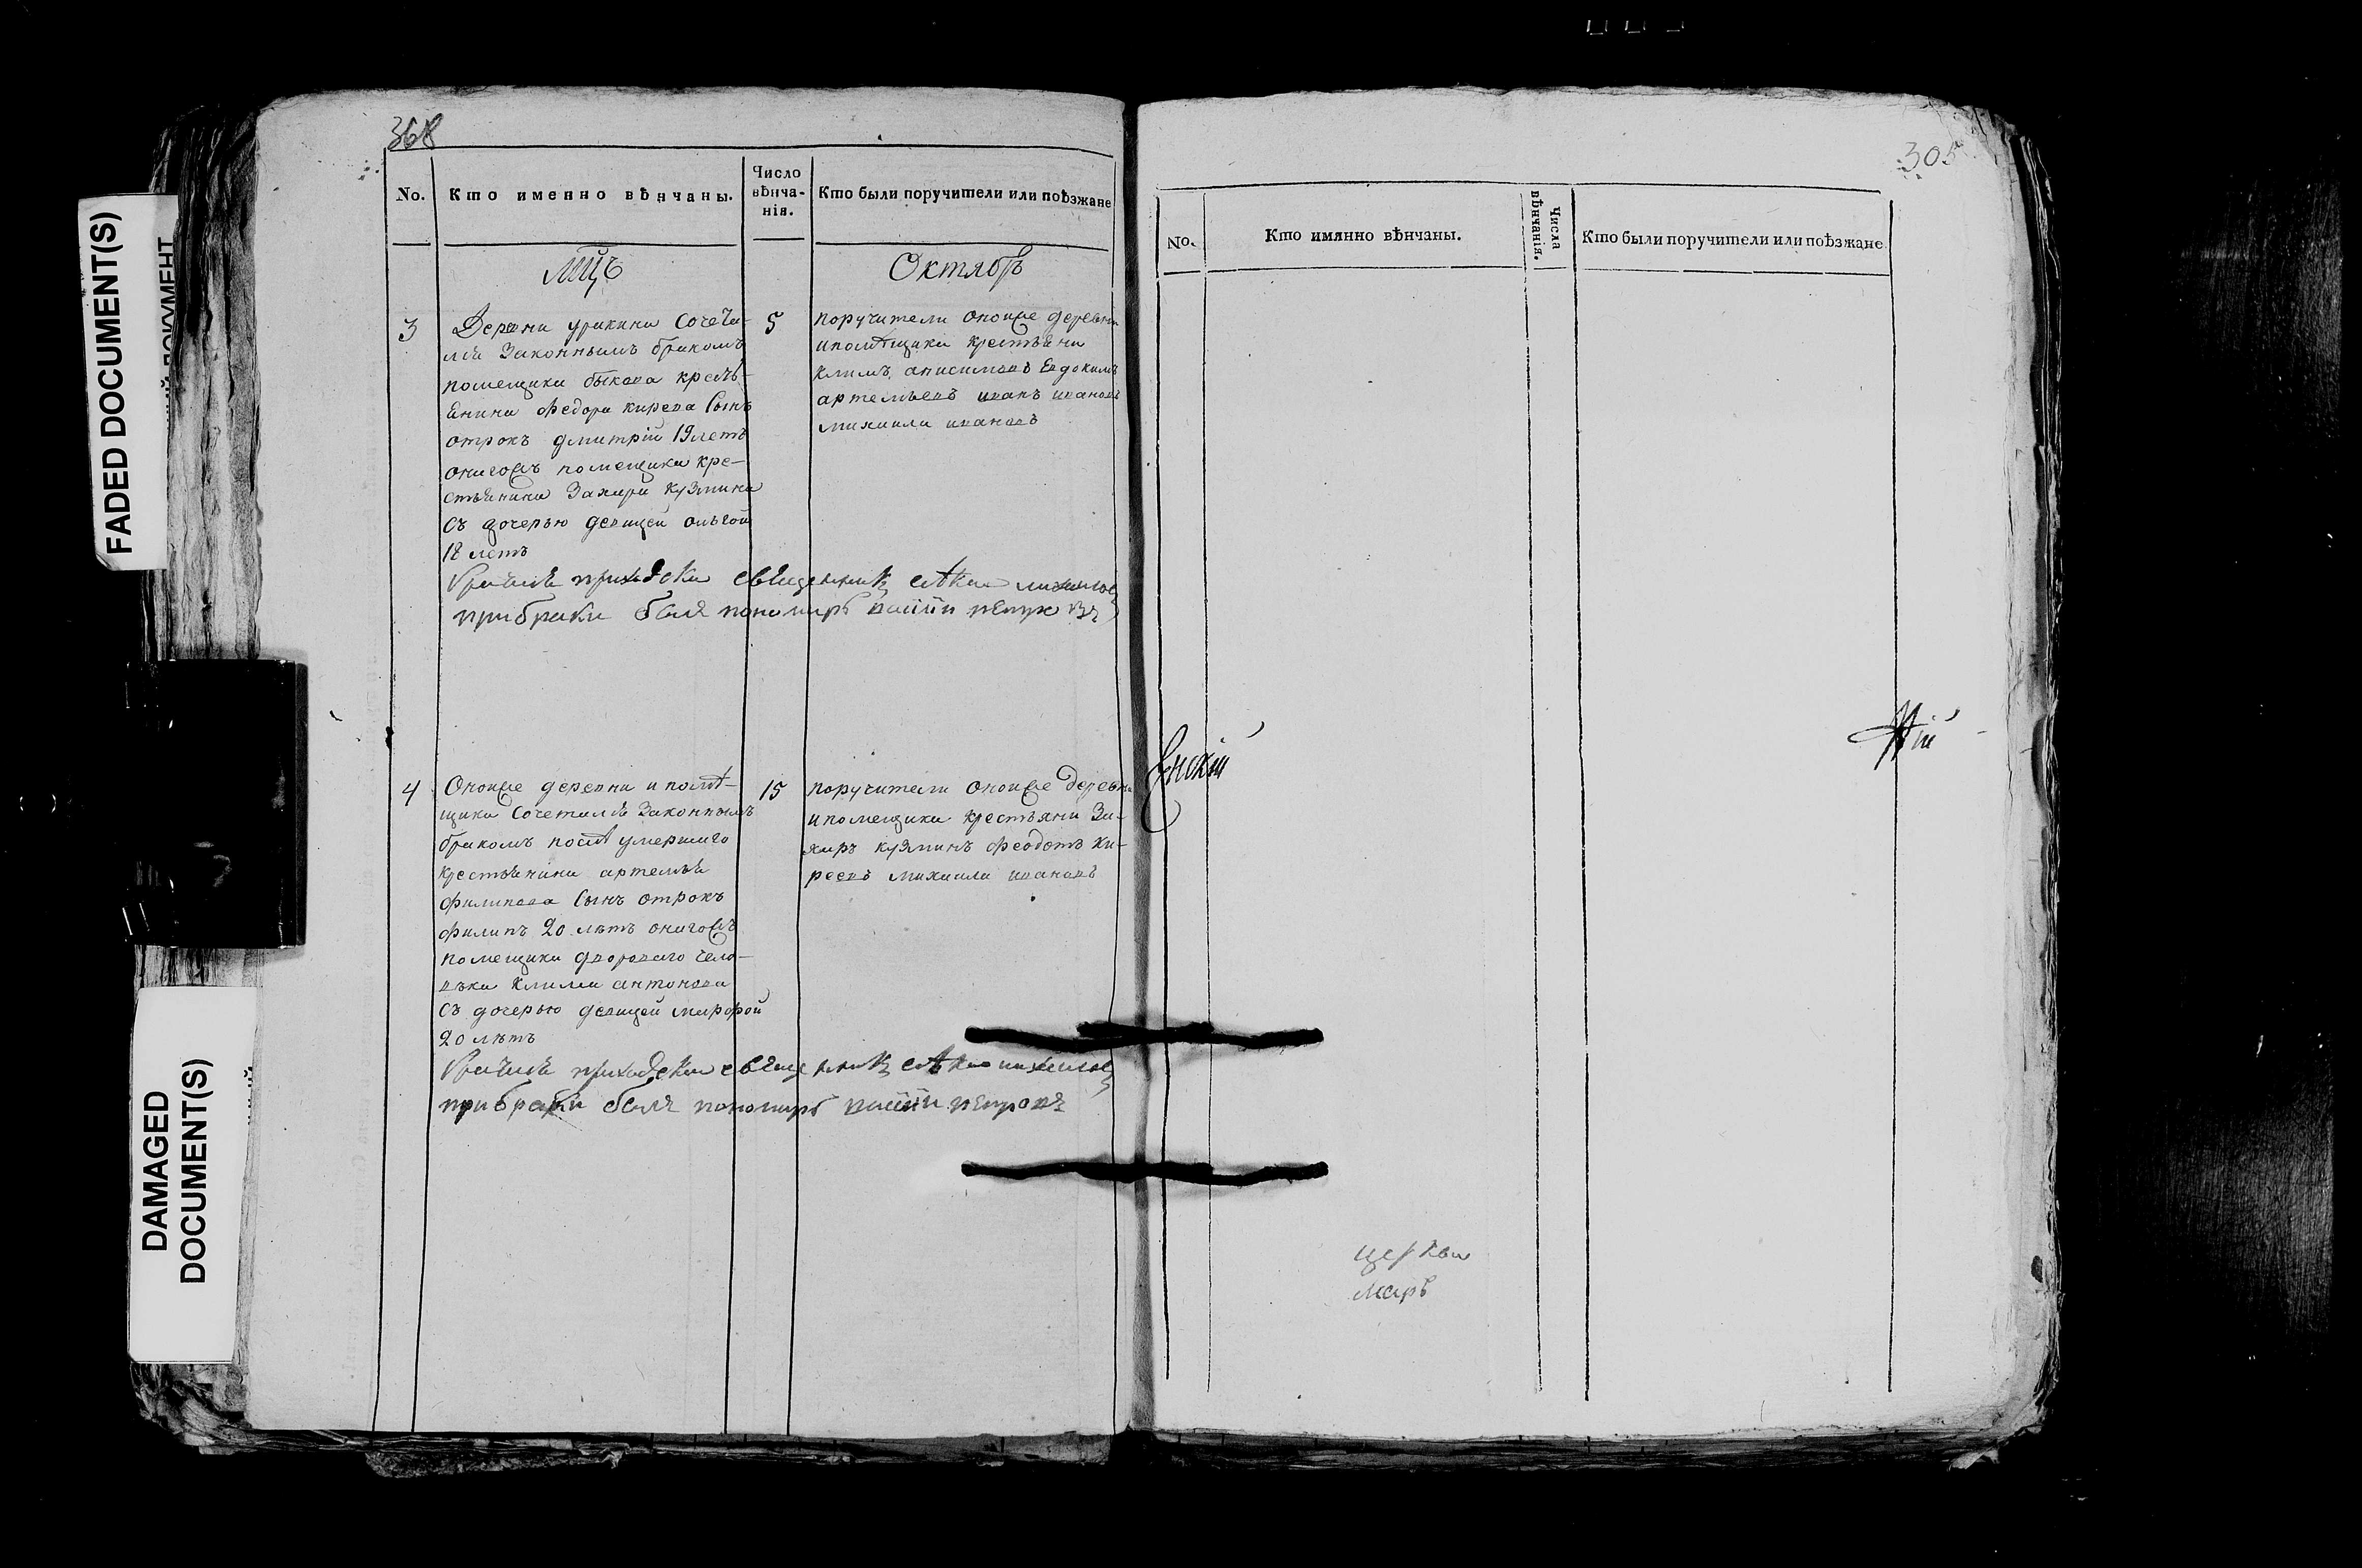 FADED DOCUMENT(S)
DAMAGED
DOCUMENT(S)
368
No.
Кто именно вѣнчаны.
Число
вѣнча-
нія.
Кто были поручители или поѣзжане
мцъ
Октябрь
3
Деревни сочета-
лся законнымъ бракомъ
помещика быкова кресть-
янина федора кирева сынъ
отрокъ дмитрий 19 летъ
оногожъ помещика кре-
стьянина Захара кузмина
съ дочерью девицей ольгой
18 летъ
5
поручители оноиже деревни
и помѣщика крестьяня
климъ анисимовъ Евдокимъ
артемьевъ иванъ ивановъ
михаила ивановъ
священникъ
при браке былъ пономарь петровъ
4
Оноиже деревни и помѣ-
щика сочетался законнымъ
бракомъ послѣ умершаго
крестьянина артемья
филипова сынъ отрокъ
филипъ 20 лѣтъ оногожъ
помещика двороваго чело-
вѣка клима антонова
съ дочерью девицей марфой
20 лѣтъ
15
поручители оноиже деревни
и помещика крестьяня За-
харъ кузминъ феодотъ ки-
реевъ михаила ивановъ
священникъ
при браке былъ пономарь петровъ
305
No.
Кто имянно вѣнчаны.
Числа
вѣнчанія.
Кто были поручители или поѣзжане
церкви